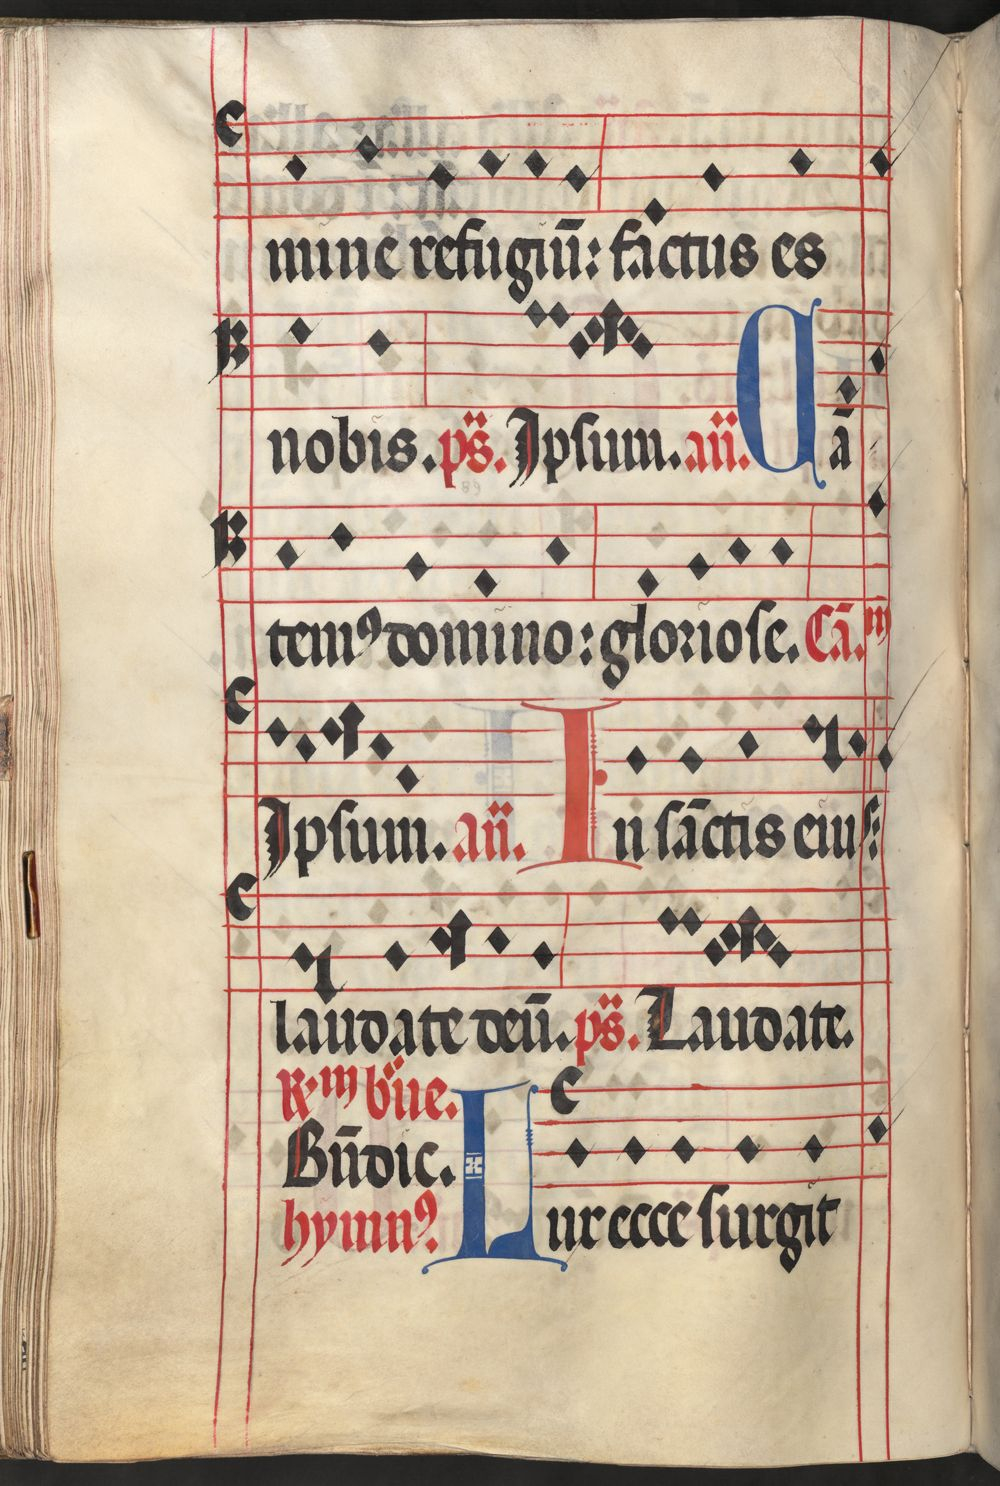 mine refugiū: factus es
nobis. ps̄. Ipsum. an̄. Cā
temꝰ domino: gloriose. Cā. m
Ipsum. an̄. In sāctis eius:
laudate deū. ps̄. Laudate.
R. m b̄ue.
Bn̄dic.
hymnꝰ. Lux ecce surgit